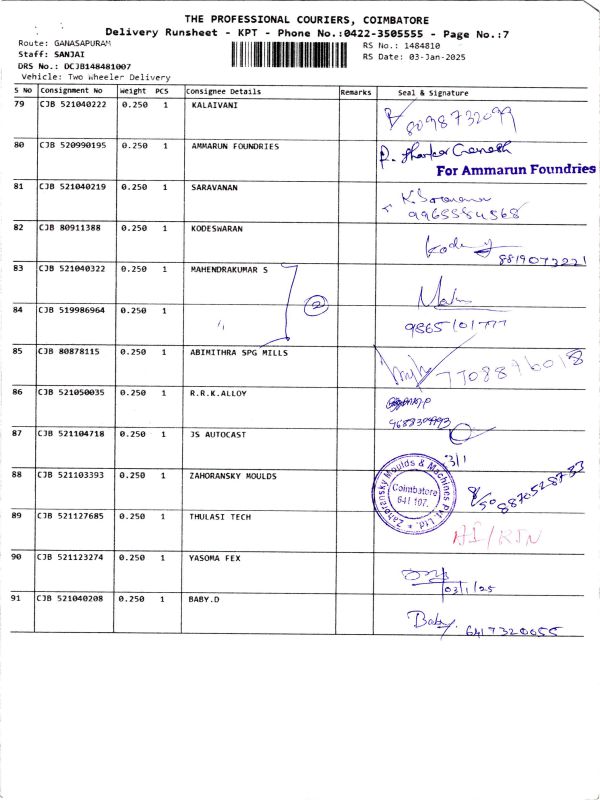 THE PROFESSIONAL COURIERS, COIMBATORE
Delivery Runsheet - KPT - Phone No.:0422-3505555 - Page No.:7
Route: GANASAPURAM
RS No.: 1484810
Staff: SANJAI
RS Date: 03-Jan-2025
DRS No.: DCJB148481007
Vehicle: Two Wheeler Delivery
S NO Consignment No Weight PCS Consignee Details Remarks Seal & Signature
79 CJB 521040222 0.250 1 KALAIVANI
8098732099
80 CJB 520990195 0.250 1 AMMARUN FOUNDRIES
For Ammarun Foundries
81 CJB 521040219 0.250 1 SARAVANAN
9965584568
82 CJB 80911388 0.250 1 KODESWARAN
8819072221
83 CJB 521040322 0.250 1 MAHENDRAKUMAR S
2
84 CJB 519986964 0.250 1 "
9865101777
85 CJB 80878115 0.250 1 ABIMITHRA SPG MILLS
7708896018
86 CJB 521050035 0.250 1 R.R.K.ALLOY
87 CJB 521104718 0.250 1 JS AUTOCAST
3/1
88 CJB 521103393 0.250 1 ZAHORANSKY MOULDS
Zahoransky Moulds & Machines Pvt. Ltd.
Coimbatore
641 107.
89 CJB 521127685 0.250 1 THULASI TECH
90 CJB 521123274 0.250 1 YASOMA FEX
03/1/25
91 CJB 521040208 0.250 1 BABY.D
Baby.
6417320655